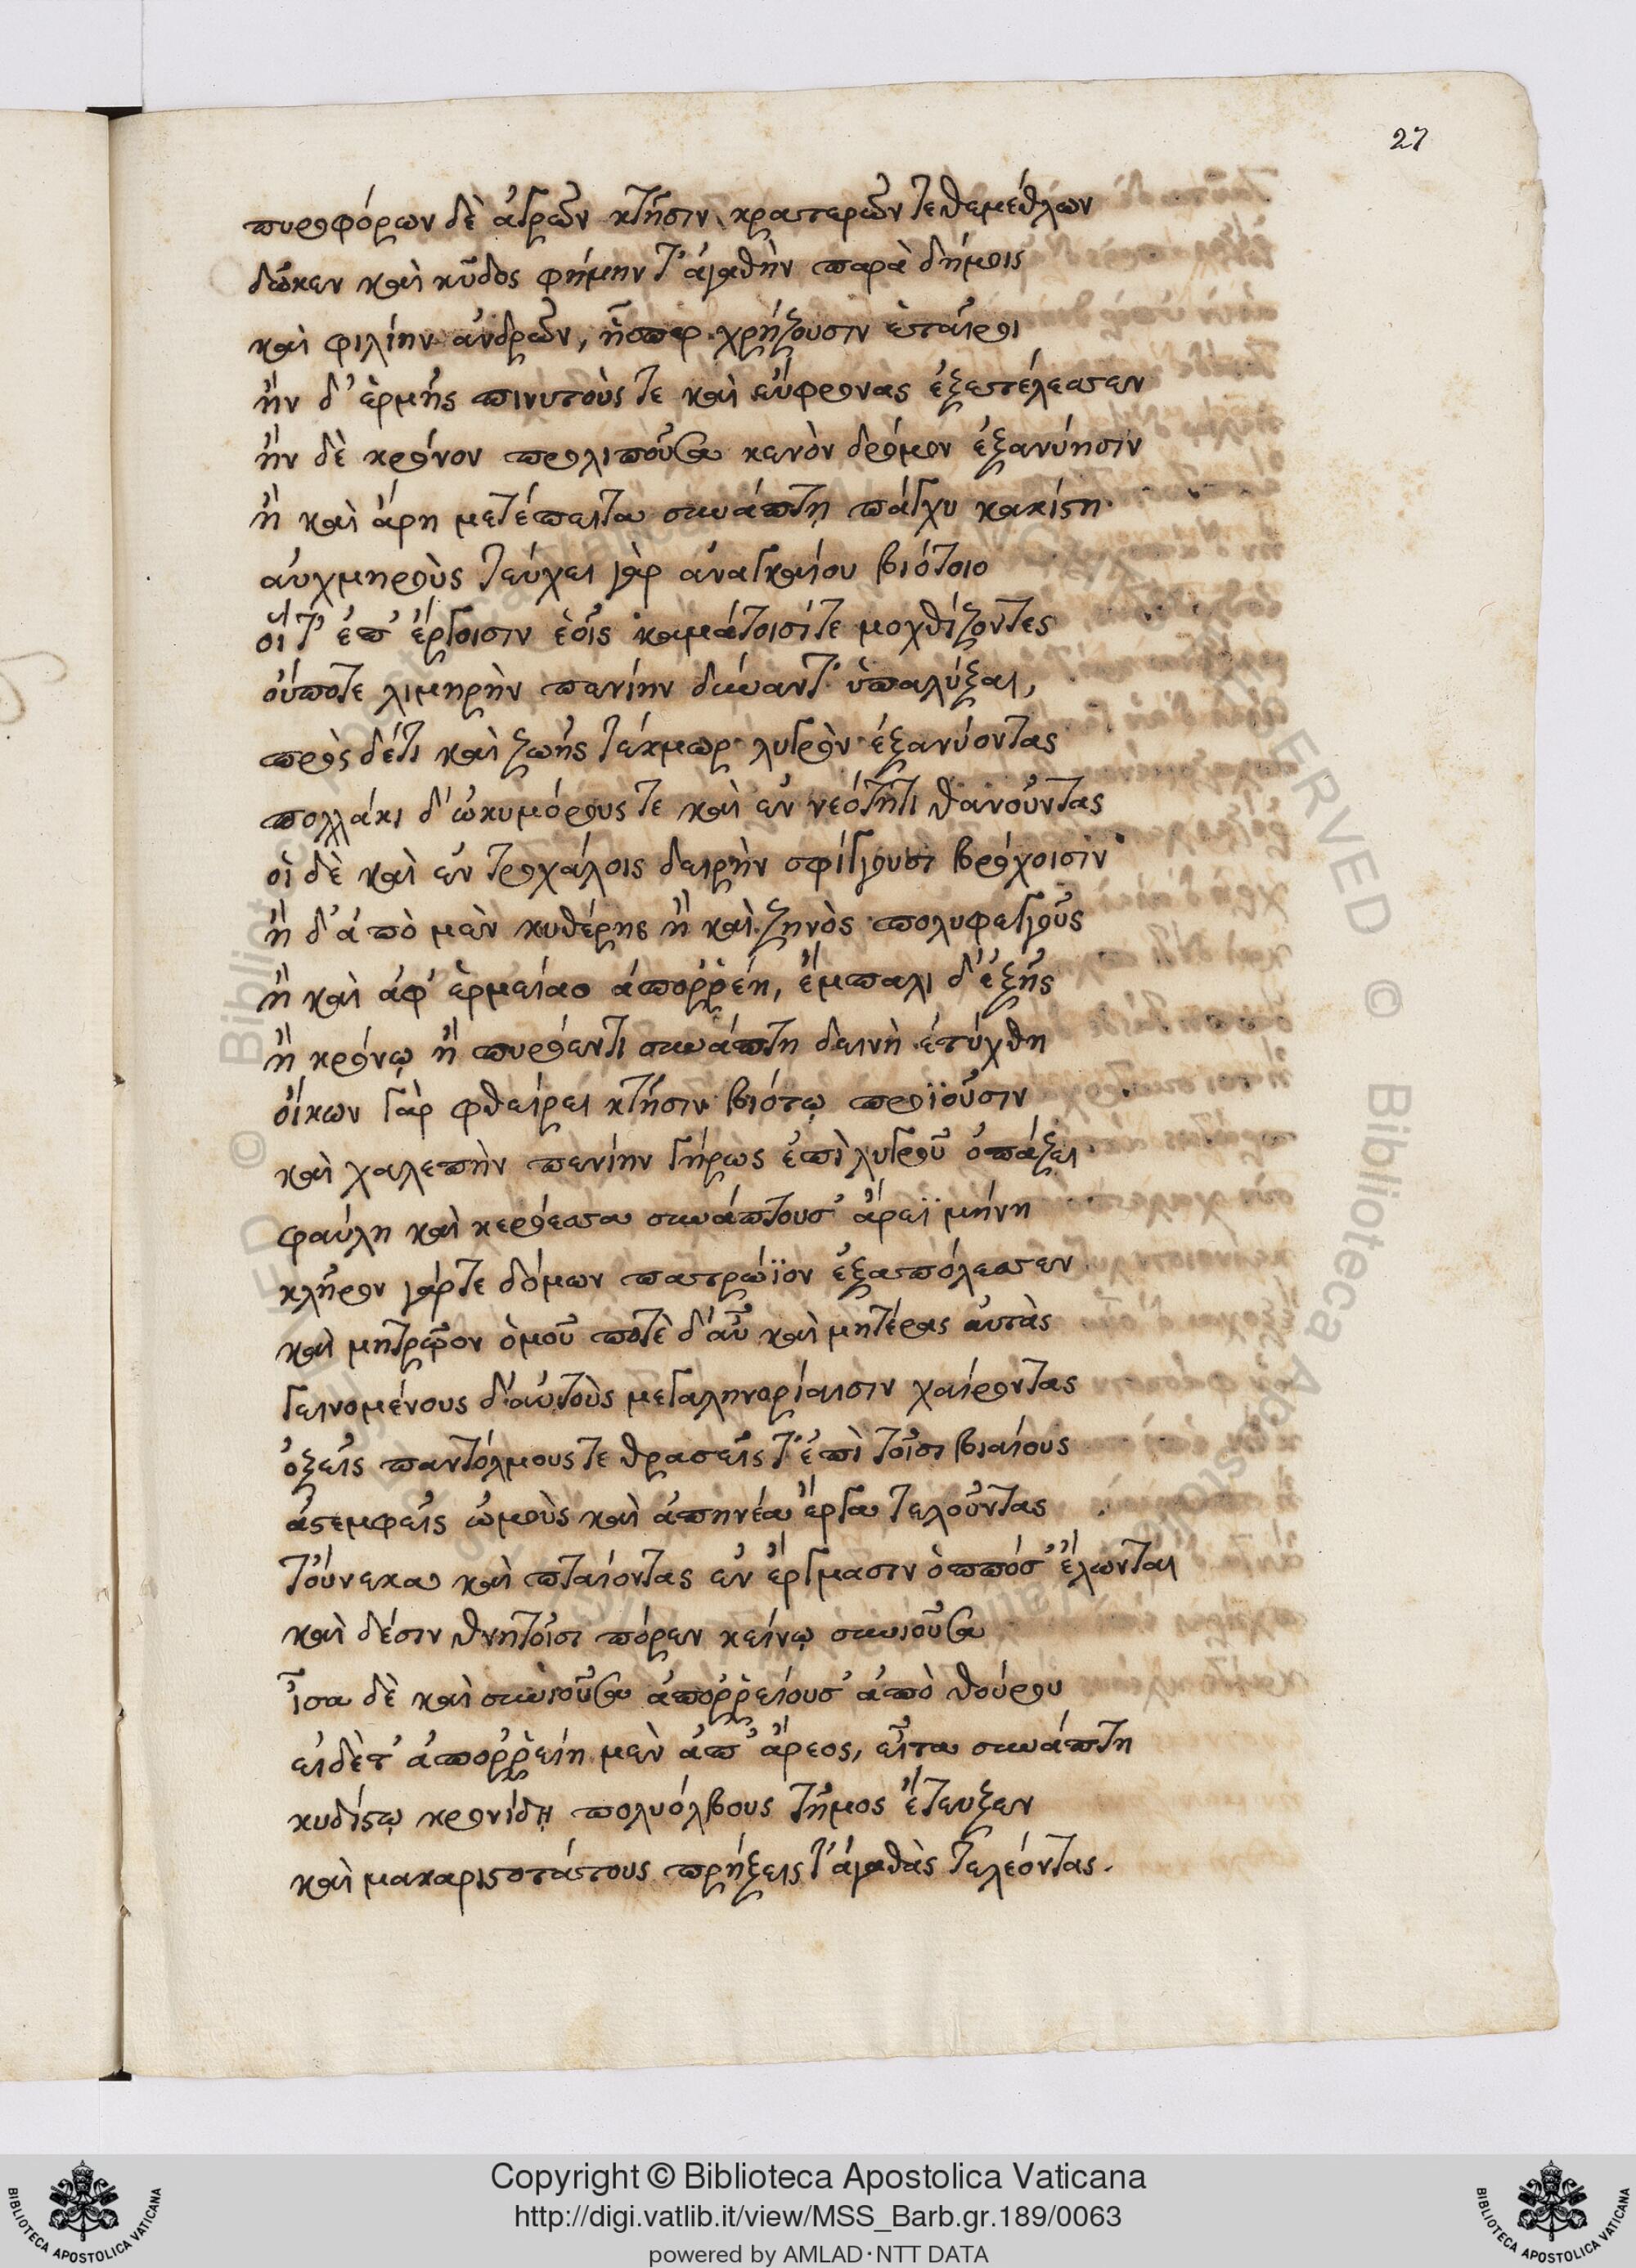 27
πυροφόρων δὲ ἀγρῶν κτῆσιν, κρατερῶν τε θεμέθλων
δῶκεν καὶ κῦδος φήμην τ' ἀγαθὴν παρὰ δήμοις
καὶ φιλίην ἀνδρῶν, ἧσπερ χρήζουσιν ἑταῖροι
ἢν δ' ἑρμῆς πινυτούς τε καὶ εὔφρονας ἐξετέλεσσεν
ἢν δὲ κρόνον προλιποῦσα κενὸν δρόμον ἐξανύησιν
ἢ καὶ ἄρη μετέπειτα συνάπτῃ πάγχυ κακίστη
αὐχμηροὺς τεύχει γὰρ ἀναγκαίου βιότοιο
οἵ τ' ἐπ' ἔργοισιν ἑοῖς καμάτοισί τε μοχθίζοντες
οὔποτε λιμηρὴν πενίην δύναντ' ὑπαλύξαι,
πρὸς δέτι καὶ ζωῆς τέκμωρ λυγρὸν ἐξανύοντας
πολλάκι δ' ὠκυμόρους τε καὶ ἐν νεότητι θανοῦντας
οἱ δὲ καὶ ἐν τροχάλοις δειρὴν σφίγγουσι βρόχοισιν
ἢ δ' ἀπὸ μὲν κυθέρης ἢ καὶ ζηνὸς πολυφεγγοῦς
ἢ καὶ ἀφ' ἑρμείαο ἀπορῥέη, ἔμπαλι δ' ἑξῆς
ἢ κρόνῳ ἢ πυρόεντι συνάπτη δεινὴ ἐτύχθη
οἴκων γὰρ φθείρει κτῆσιν βιότῳ προϊοῦσιν
καὶ χαλεπὴν πενίην γήρως ἐπὶ λυγροῦ ὀπάζει
φαύλη καὶ κερόεσσα συνάπτουσ' ἄρεϊ μήνη
κλῆρον γάρτε δόμων πατρώϊον ἐξαπόλεσσεν
καὶ μητρῷον ὁμοῦ ποτὲ δ' αὖ καὶ μητέρας αὐτὰς
γεινομένους δ' αὐτοὺς μεγαληνορίαισιν χαίροντας
ὀξεῖς παντόλμους τε θρασεῖς τ' ἐπὶ τοῖσι βιαίους
ἀστεμφεῖς ὠμοὺς καὶ ἀπηνέα ἔργα τελοῦντας
τούνεκα καὶ πταίοντας ἐν ἔργμασιν ὁππόσ' ἕλωνται
καὶ δέσιν θνητοῖσι πόρεν κείνῳ συνιοῦσα
ἶσα δὲ καὶ συνιοῦσα ἀπορῥείουσ' ἀπὸ θούρου
εἰδὲτ' ἀπορῥείη μὲν ἀπ' ἄρεος, εἶτα συνάπτη
κυδίστῳ κρονίδῃ πολυόλβους τῆμος ἔτευξεν
καὶ μακαριστοτάτους πρήξεις τ' ἀγαθὰς τελέοντας.
Copyright © Biblioteca Apostolica Vaticana
http://digi.vatlib.it/view/MSS_Barb.gr.189/0063
powered by AMLAD·NTT DATA
BIBLIOTECA APOSTOLICA VATICANA
BIBLIOTECA APOSTOLICA VATICANA